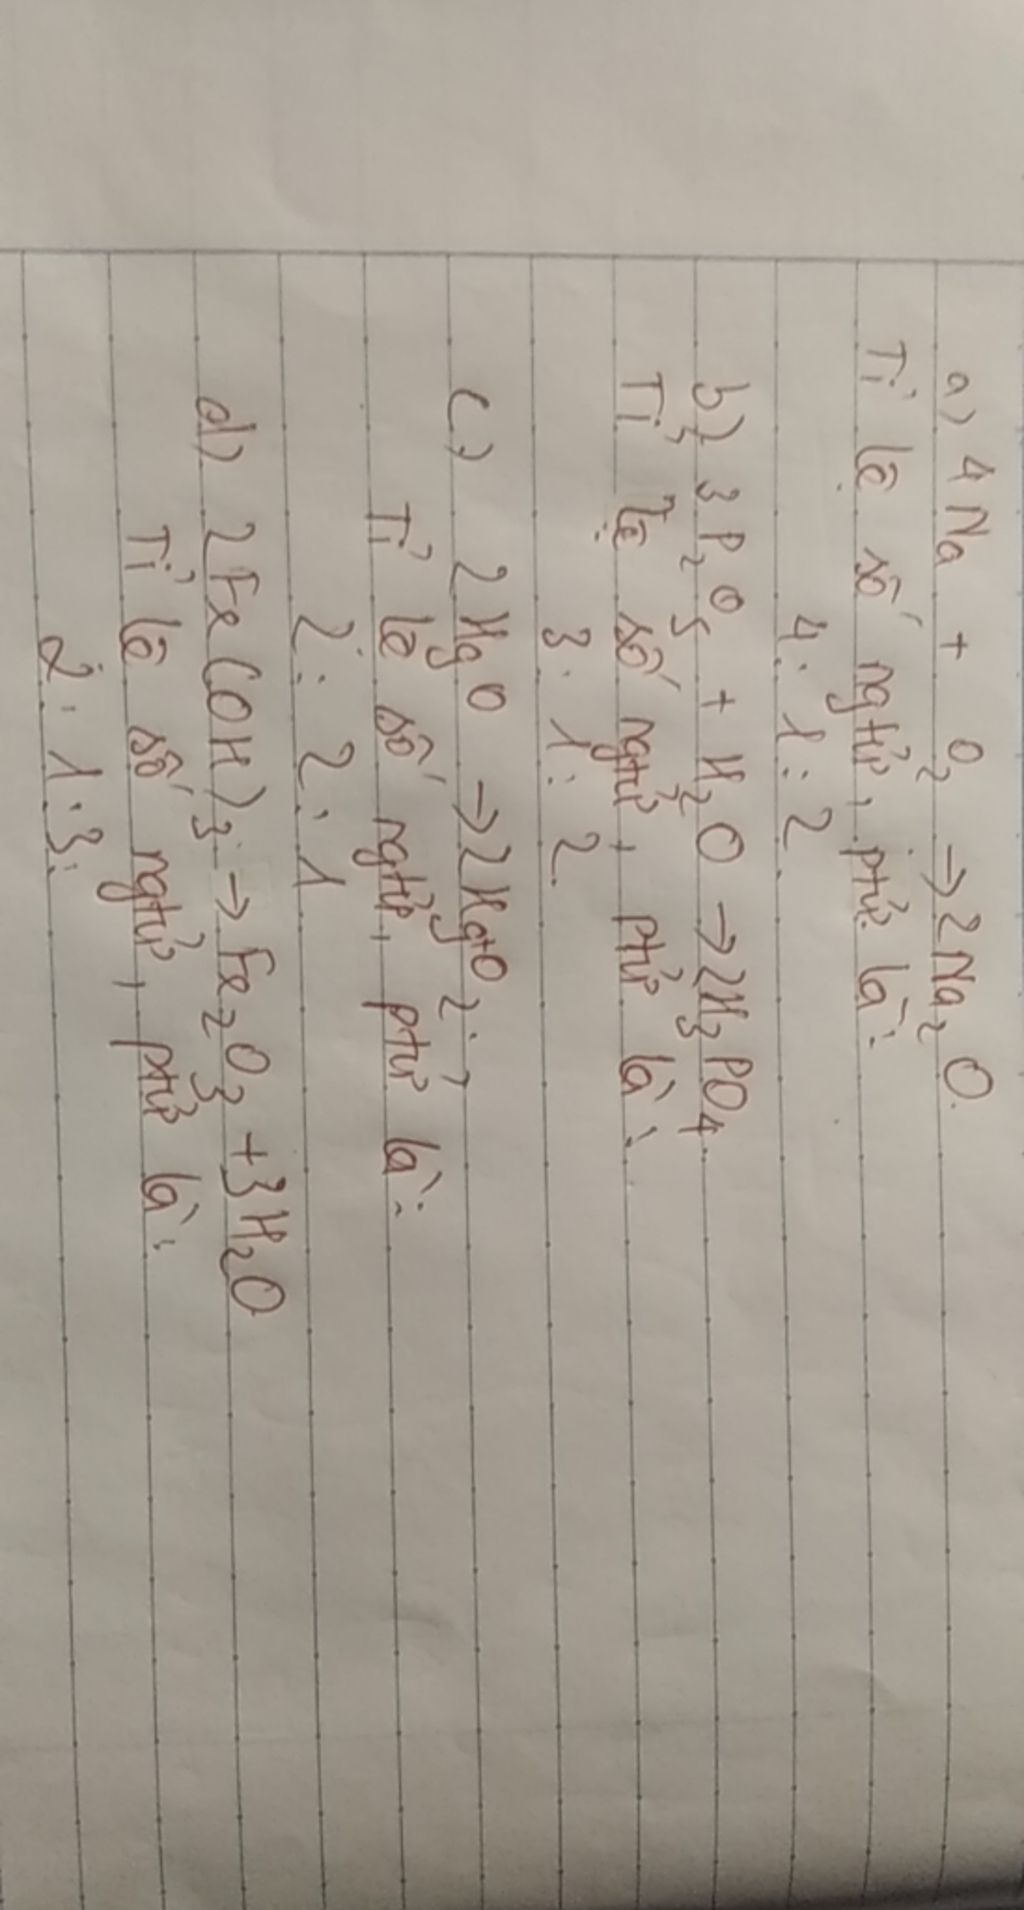 a) 4Na + O₂ → 2Na₂O.
Tỉ lệ số ngtử, ptử là:
4: 1: 2
b) 3P₂O₅ + H₂O → 2H₃PO₄.
Tỉ lệ số ngtử, ptử là:
3: 1: 2
c) 2HgO → 2Hg+O₂.
Tỉ lệ số ngtử, ptử là:
2: 2: 1
d) 2Fe(OH)₃ → Fe₂O₃ + 3H₂O
Tỉ lệ số ngtử, ptử là:
2: 1: 3.